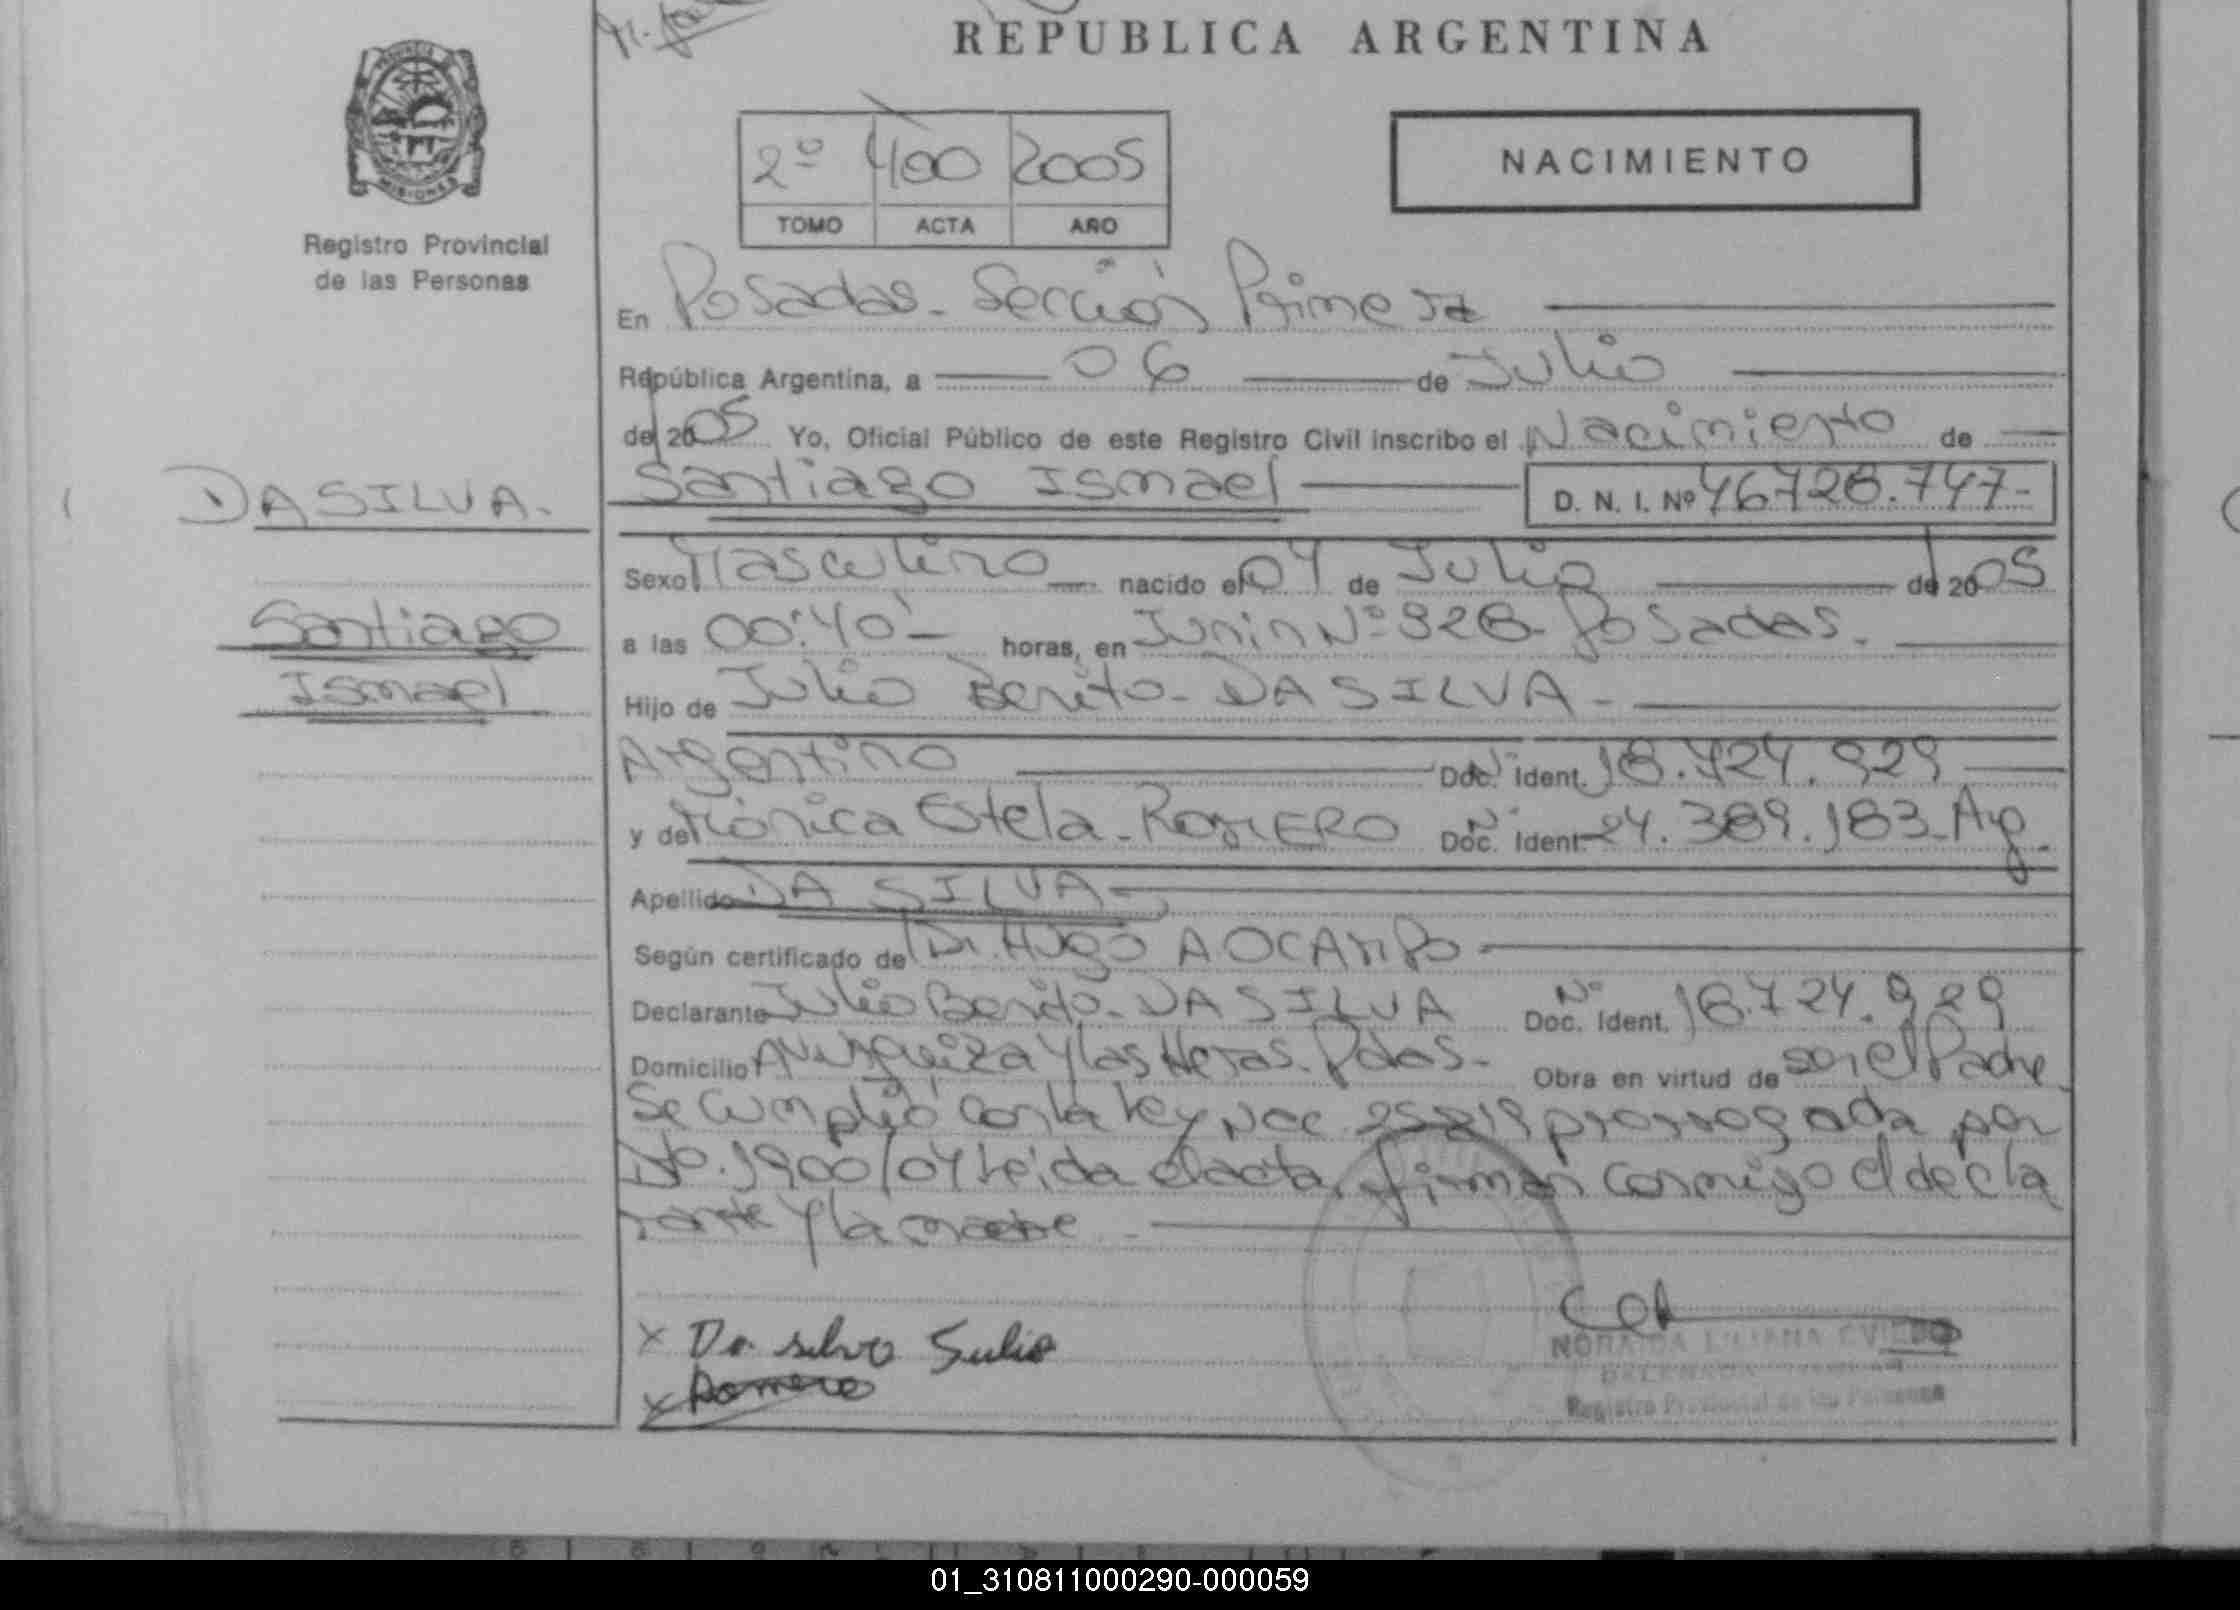 REPUBLICA ARGENTINA
PROVINCIA
MISIONES
Registro Provincial
de las Personas
2º 400 2005
TOMO ACTA AÑO
NACIMIENTO
En Posadas - Sección Primera
República Argentina, a 06 de Julio
del 2005 Yo, Oficial Público de este Registro Civil inscribo el Nacimiento de
Santiago Ismael D. N. I. Nº 46.728.747-
DA SILVA.
Santiago
Ismael
Sexo Masculino nacido el 04 de Julio del 2005
a las 00:40 - horas, en Junin Nº 928 - Posadas.
Hijo de Julio Benito - DA SILVA -
Argentino Doc. Ident. Nº 18.724.929
y de Mónica Estela - ROMERO Doc. Ident. Nº 24.389.183 - Arg.
Apellido DA SILVA -
Según certificado de Dr. HUGO A OCAMPO -
Declarante Julio Benito - DA SILVA Doc. Ident. Nº 18.724.929
Domicilio y Las Heras - Pdas - Obra en virtud de ser el Padre
Se cumplió con la ley Nac 25819 prorrogada por
Dto. 1900/04 leida el acta, firman conmigo el decla
rante y la madre -
x Da silva Julio
x Romero
LILIANA
Registro Provincial de las Personas
01_310811000290-000059